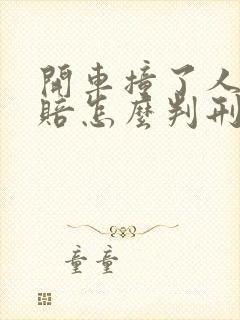 開車撞了人
賠怎麼判刑
童童